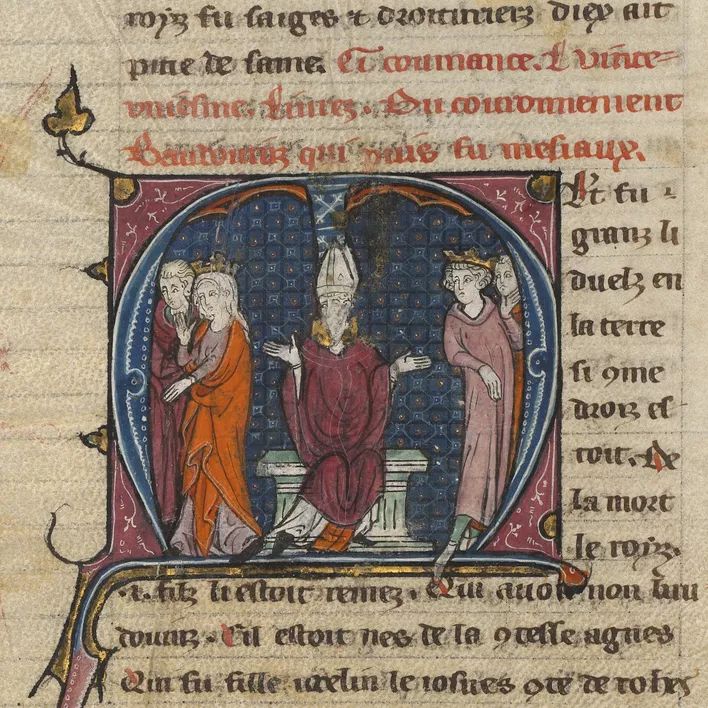 royz fu saiges & droituriers diex ait
pitie de same. Ci coumance. li vinte-
uniesme. liures. Du couronnement
Baudouin qui puis fu mesiaux.
Et fu
granz li
duelz en
la terre
si 9me
droiz es-
toit. De
la mort
le royz.
.i. filz li estoit remez. Qui auoit non bau
douin. Cil estoit nes de la 9tesse agnes
Qui fu fille iocelin le 9te de rohes